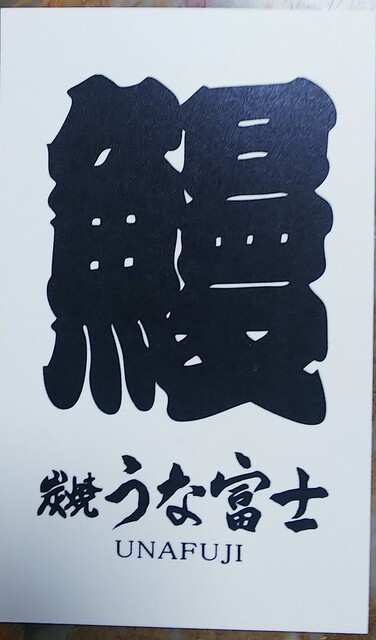 鰻
炭焼うな富士
UNAFUJI